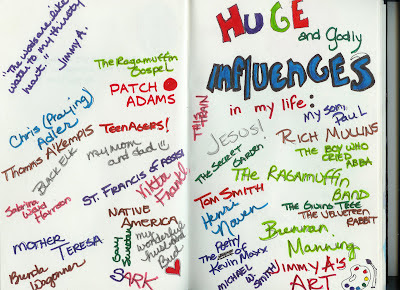 "The words are like
water to my thirsty
heart."
Jimmy A.
The Ragamuffin
Gospel
PATCH
ADAMS
Chris (Praying)
Adler
TeenAgers!
Thomas A'Kempis
my Mom
and dad
Black Elk
ST. FRANCIS OF Assisi
Viktor
Frankl
Sabrina
Ward
Harrison
NATIVE
AMERICA
MOTHER
TERESA
my
wonderful
husband
Bud
Brenda
Waggoner
SARK
HUGE
and godly
INFLUENCES
in my life:
THIS
TRAIN
JESUS!
my son,
Paul
RICH MULLINS
THE SECRET
GARDEN
THE BOY WHO
CRIED
ABBA
THE RAGAMUFFIN
BAND
TOM SMITH
Henri
Nouwen
THE GIVING TREE
THE VELVETEEN
RABBIT
Brennan
Manning
The
Poetry
of
Kevin Max
MICHAEL W.
SMITH
JIMMY A'S
ART